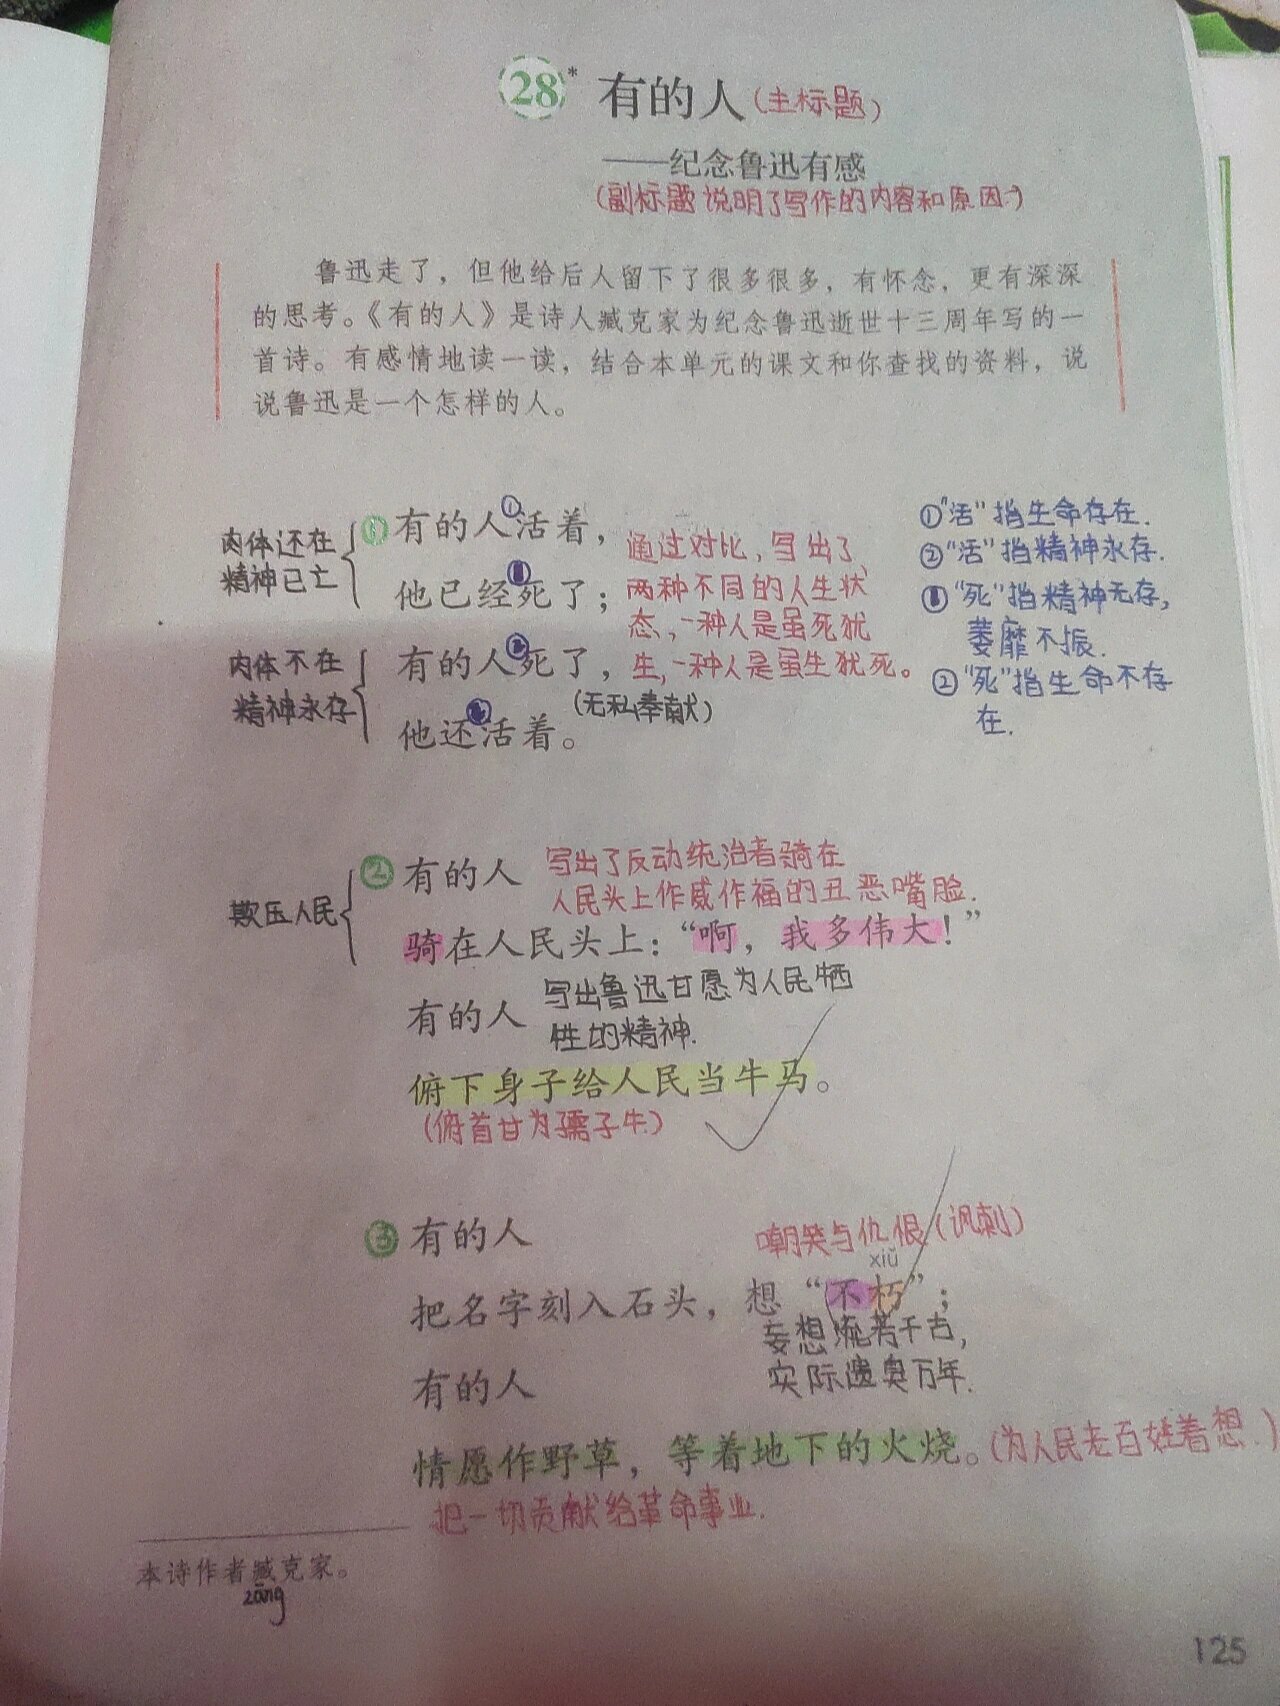 28* 有的人(主标题)
——纪念鲁迅有感
(副标题 说明了写作的内容和原因)
鲁迅走了，但他给后人留下了很多很多，有怀念，更有深深
的思考。《有的人》是诗人臧克家为纪念鲁迅逝世十三周年写的一
首诗。有感情地读一读，结合本单元的课文和你查找的资料，说
说鲁迅是一个怎样的人。
肉体还在
精神已亡
① 有的人①活着，
他已经❶死了；
通过对比，写出了
两种不同的人生状
态，一种人是虽死犹
生，一种人是虽生犹死。
①“活”指生命存在.
②“活”指精神永存.
❶“死”指精神无存，
萎靡不振.
②“死”指生命不存
在.
肉体不在
精神永存
有的人②死了，
他还活着。
(无私奉献)
欺压人民
② 有的人
写出了反动统治者骑在
人民头上作威作福的丑恶嘴脸.
骑在人民头上：“啊，我多伟大！”
有的人
写出鲁迅甘愿为人民牺
牲的精神.
俯下身子给人民当牛马。
(俯首甘为孺子牛)
③ 有的人
嘲笑与仇恨(讽刺)
xiǔ
把名字刻入石头，想“不朽”；
妄想流芳千古，
实际遗臭万年.
有的人
情愿作野草，等着地下的火烧。(为人民老百姓着想.)
把一切贡献给革命事业.
本诗作者臧克家。
zāng
125